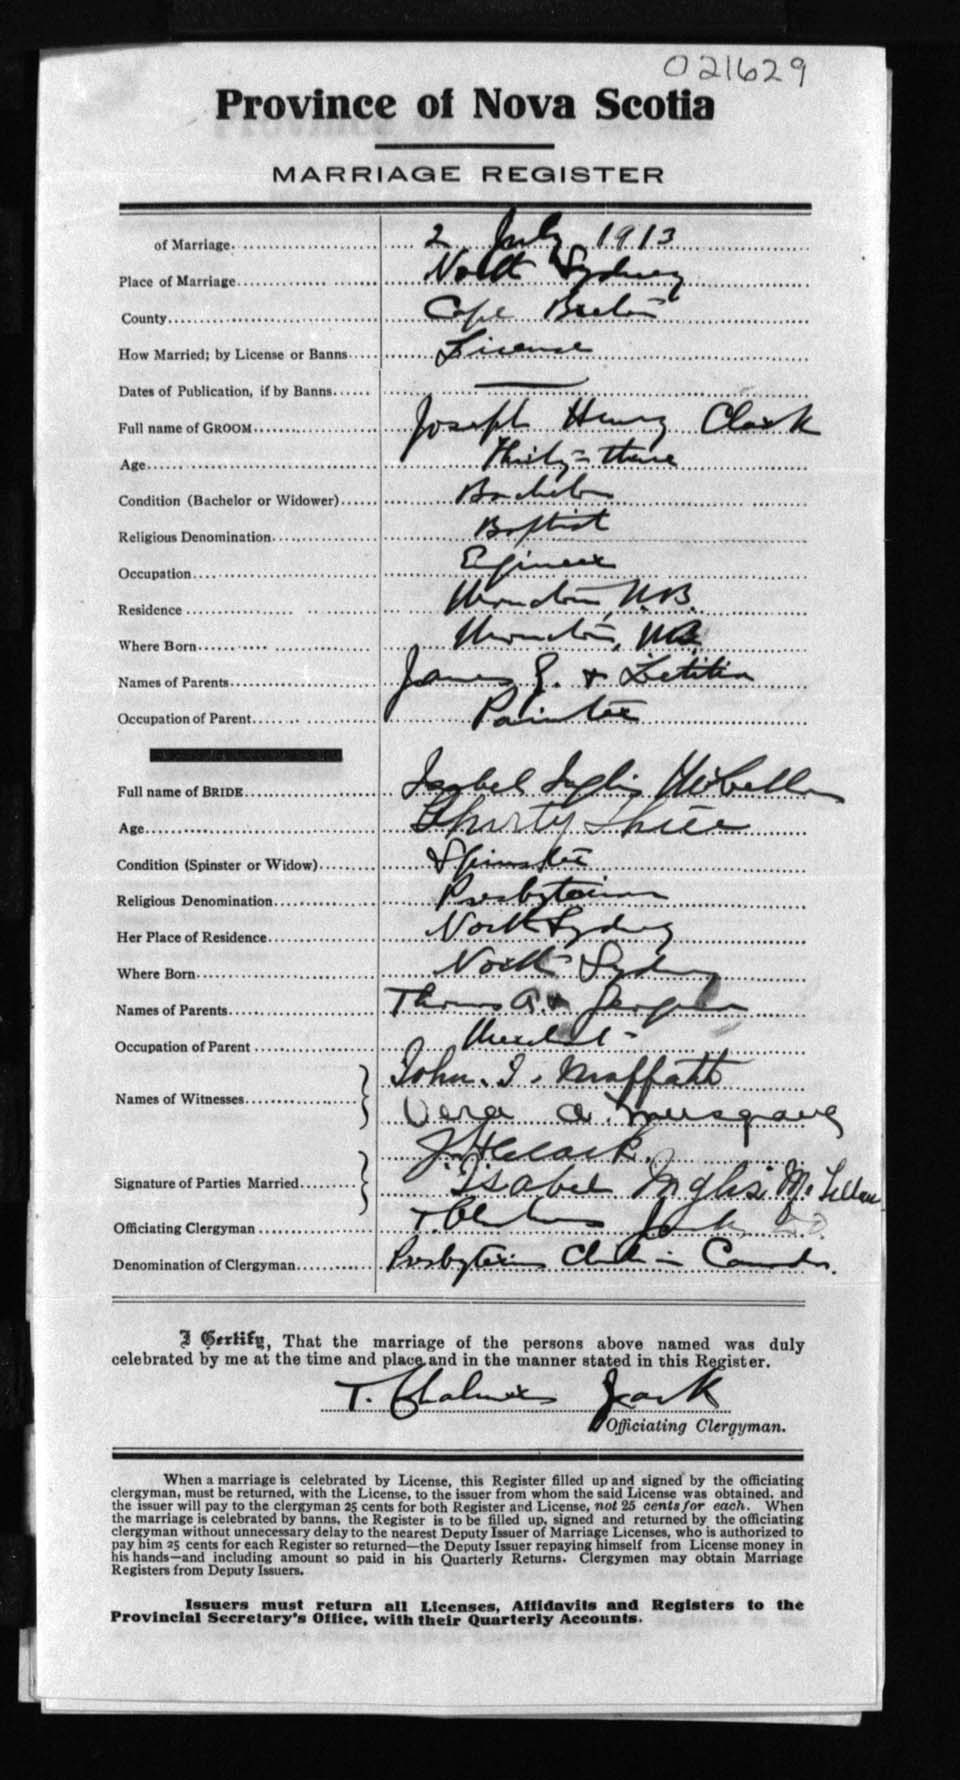 021629
Province of Nova Scotia
MARRIAGE REGISTER
of Marriage 2 July 1913
Place of Marriage North Sydney
County Cape Breton
How Married; by License or Banns License
Dates of Publication, if by Banns —
Full name of GROOM Joseph Henry Clark
Age Thirty-three
Condition (Bachelor or Widower) Bachelor
Religious Denomination Baptist
Occupation Engineer
Residence Moncton, N.B.
Where Born Moncton, N.B.
Names of Parents James E. & Letitia
Occupation of Parent Painter
Full name of BRIDE Isabel Inglis McLellan
Age Thirty three
Condition (Spinster or Widow) Spinster
Religious Denomination Presbyterian
Her Place of Residence North Sydney
Where Born North Sydney
Names of Parents Thomas A. &
Occupation of Parent Merchant
Names of Witnesses John. I. Moffatt
Vera A. Musgrave
J. H. Clark.
Signature of Parties Married Isabel Inglis McLellan
Officiating Clergyman T. Chalmers Jack
Denomination of Clergyman Presbyterian Church in Canada.
I Certify, That the marriage of the persons above named was duly
celebrated by me at the time and place and in the manner stated in this Register.
T. Chalmers Jack
Officiating Clergyman.
When a marriage is celebrated by License, this Register filled up and signed by the officiating
clergyman, must be returned, with the License, to the issuer from whom the said License was obtained, and
the issuer will pay to the clergyman 25 cents for both Register and License, not 25 cents for each. When
the marriage is celebrated by banns, the Register is to be filled up, signed and returned by the officiating
clergyman without unnecessary delay to the nearest Deputy Issuer of Marriage Licenses, who is authorized to
pay him 25 cents for each Register so returned—the Deputy Issuer repaying himself from License money in
his hands—and including amount so paid in his Quarterly Returns. Clergymen may obtain Marriage
Registers from Deputy Issuers.
Issuers must return all Licenses, Affidavits and Registers to the
Provincial Secretary's Office, with their Quarterly Accounts.